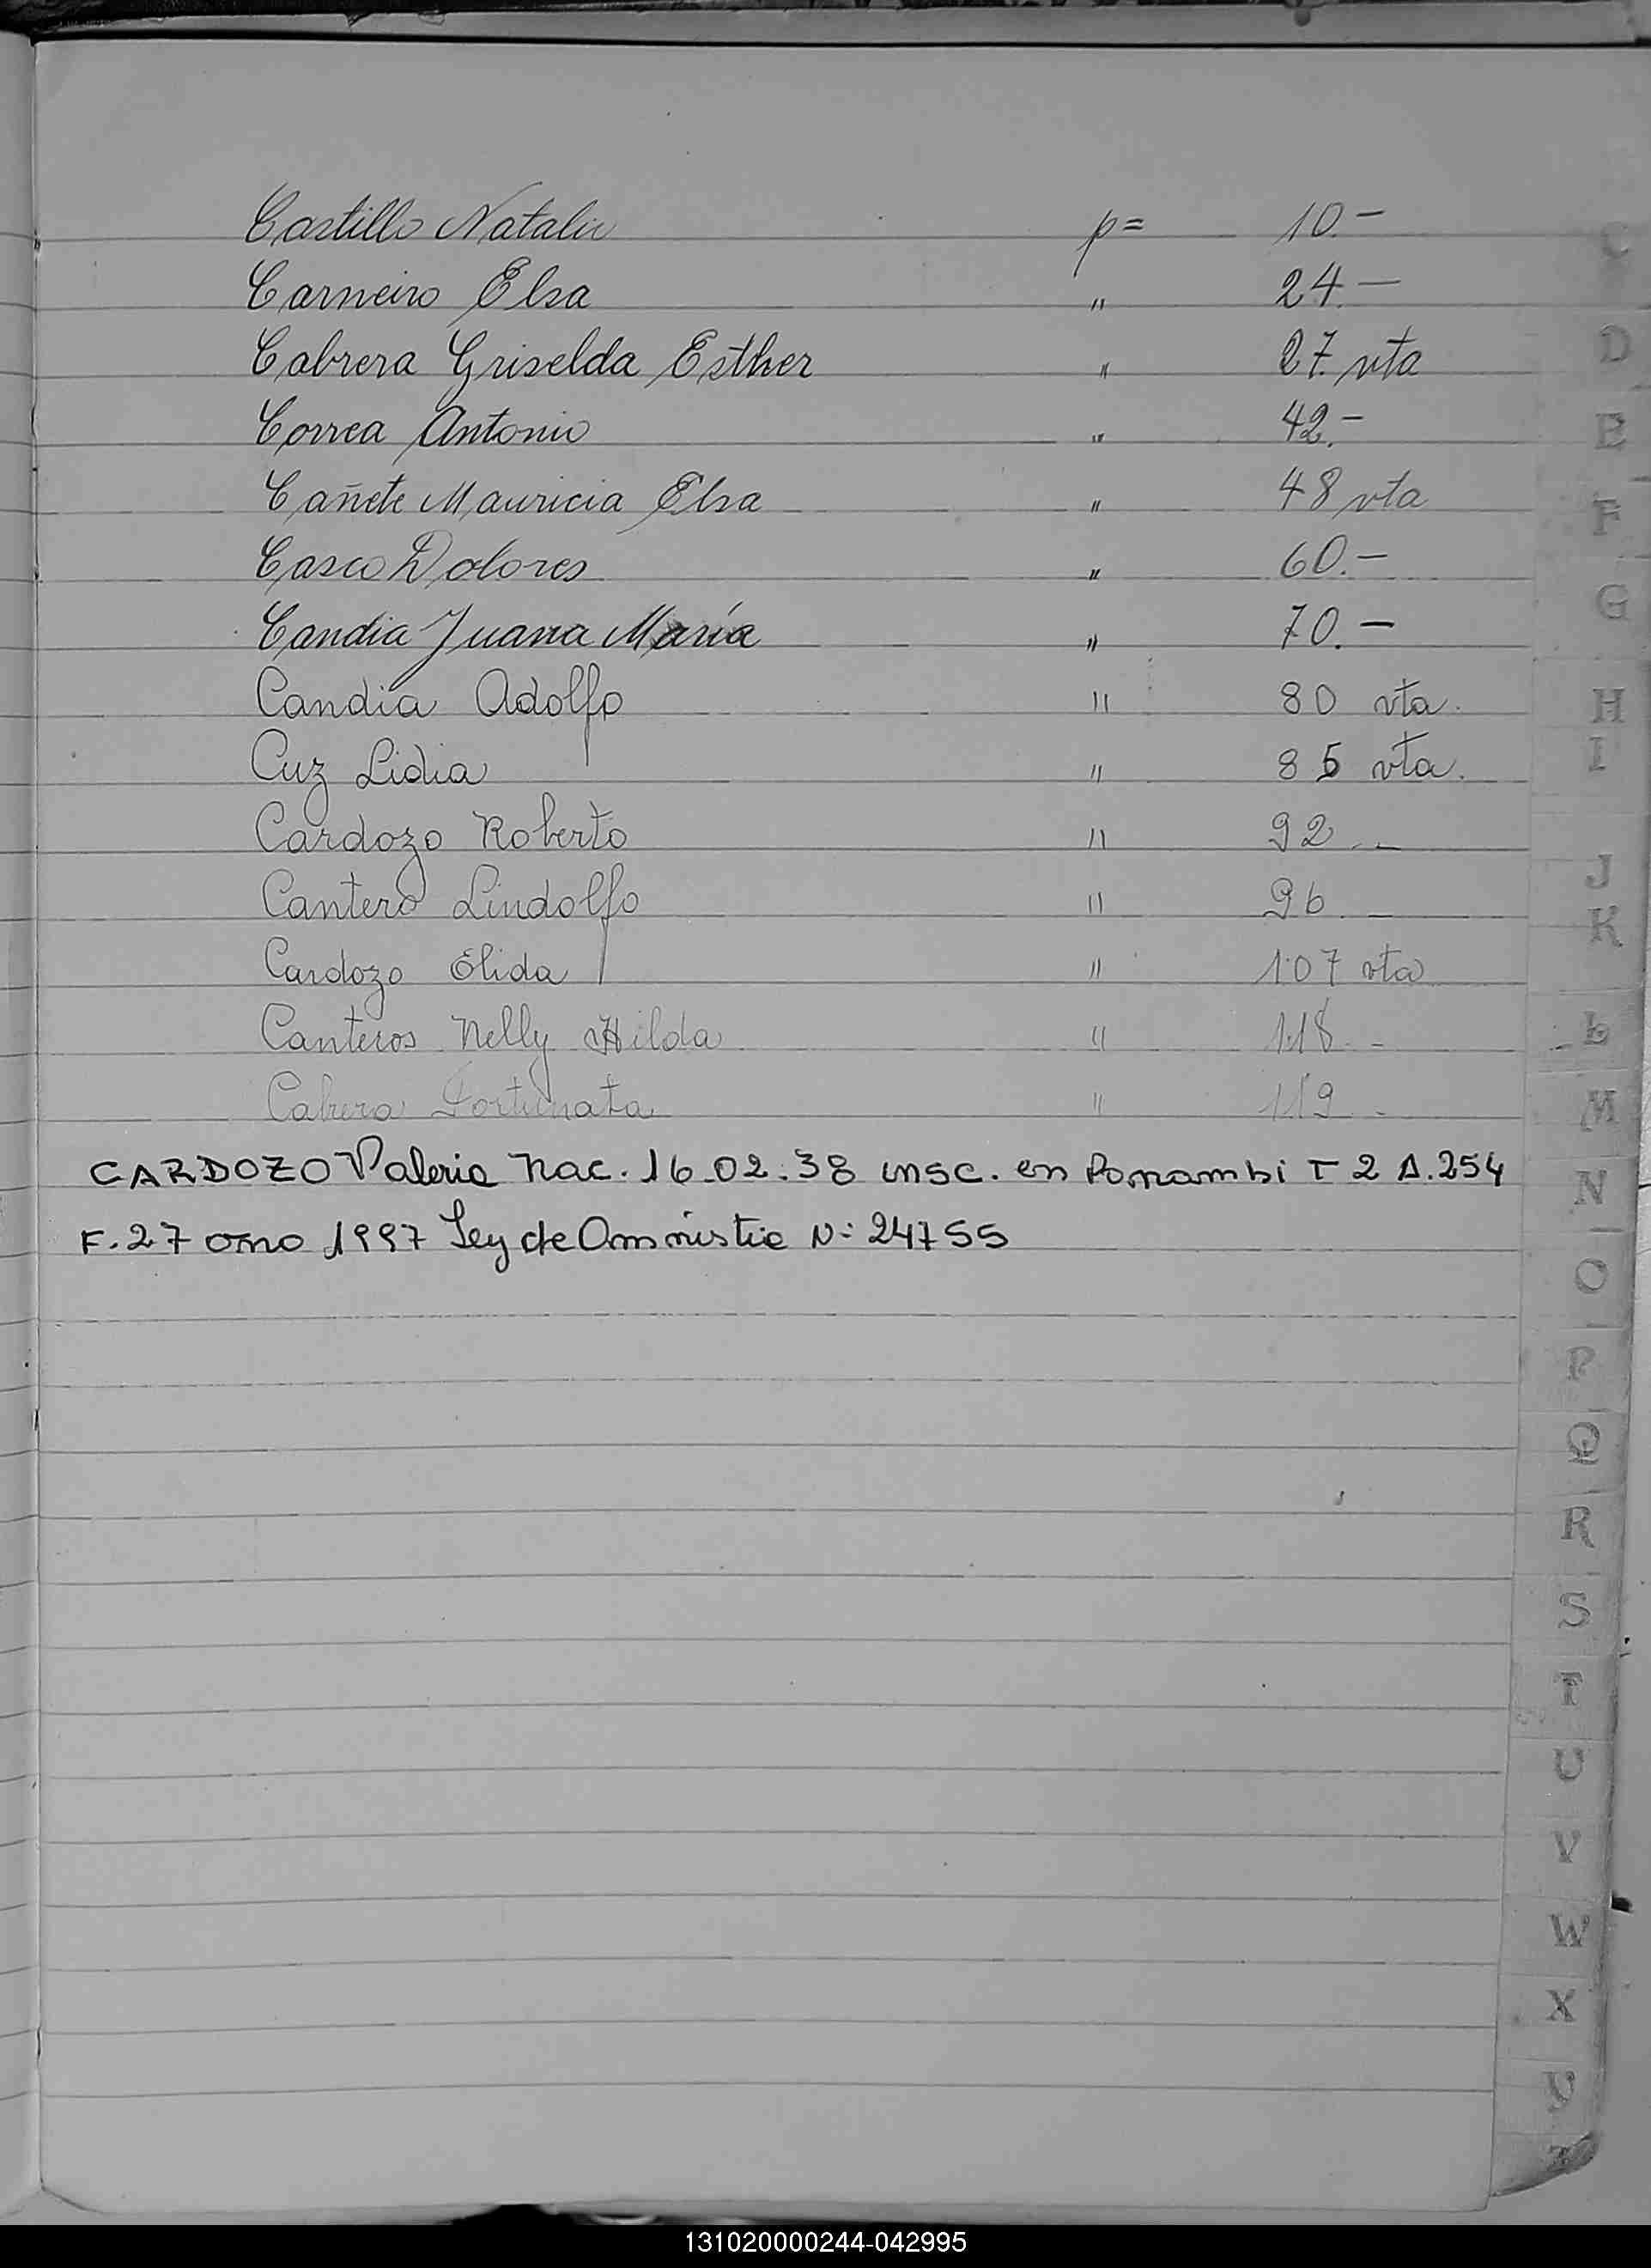 Castillo Natalia p= 10.-
Carneiro Elsa " 24.-
Cabrera Griselda Esther " 27. vta
Correa Antonio " 42.-
Cañete Mauricia Elsa " 48 vta
Casco Dolores " 60.-
Candia Juana María " 70.-
Candia Adolfo " 80 vta.
Cuz Lidia " 85 vta.
Cardozo Roberto " 92.-
Cantero Lindolfo " 96 -
Cardozo Elida " 107 vta
Canteros Nelly Hilda " 118.-
Cabrera Fortunata " 119 -
CARDOZO Valeria Nac. 16.02.38 insc. en Panambi T 2 A.254
F. 27 año 1997 Ley de Amnistia N: 24755
C
D
E
F
G
H
I
J
K
L
M
N
O
P
Q
R
S
T
U
V
W
X
Y
Z
131020000244-042995